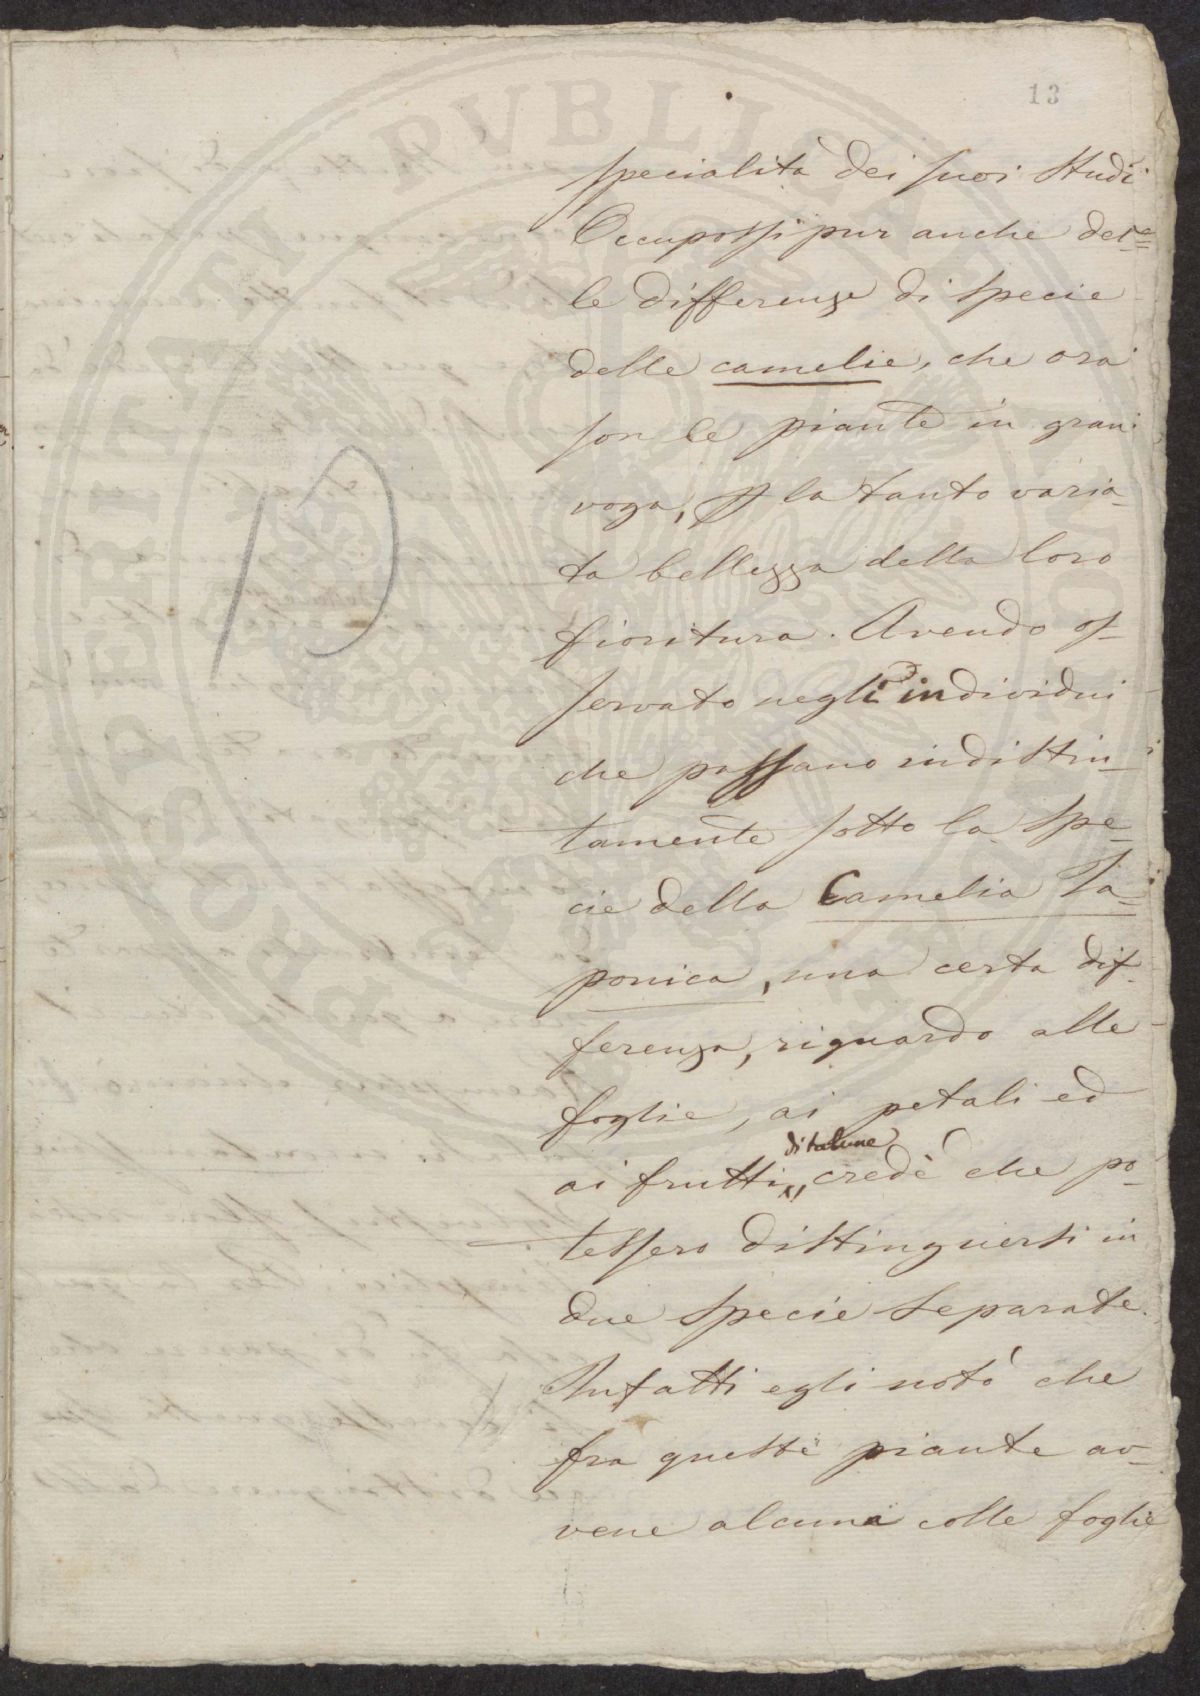 13
specialità dei suoi studi
Occupossi pur anche del=
le differenze di specie
delle camelie, che ora
son le piante in gran
voga, p la tanto varia-
ta bellezza della loro
fioritura. Avendo os-
servato negli individui
che passano indistin-
tamente sotto la spe-
cie della Camelia Ja-
ponica, una certa dif-
ferenza, riguardo alle
foglie, ai petali ed
di talune
ai frutti, credè che po-
tessero distinguersi in
due specie separate.
Infatti egli notò che
fra queste piante av-
vene alcune colle foglie